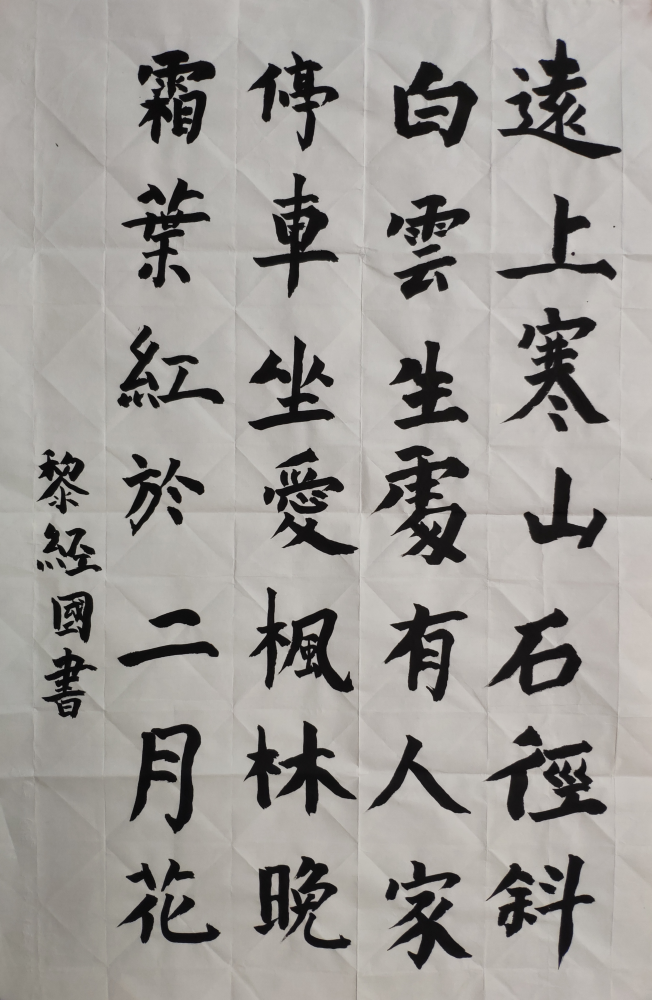 遠上寒山石徑斜
白雲生處有人家
停車坐愛楓林晚
霜葉紅於二月花
黎經國書